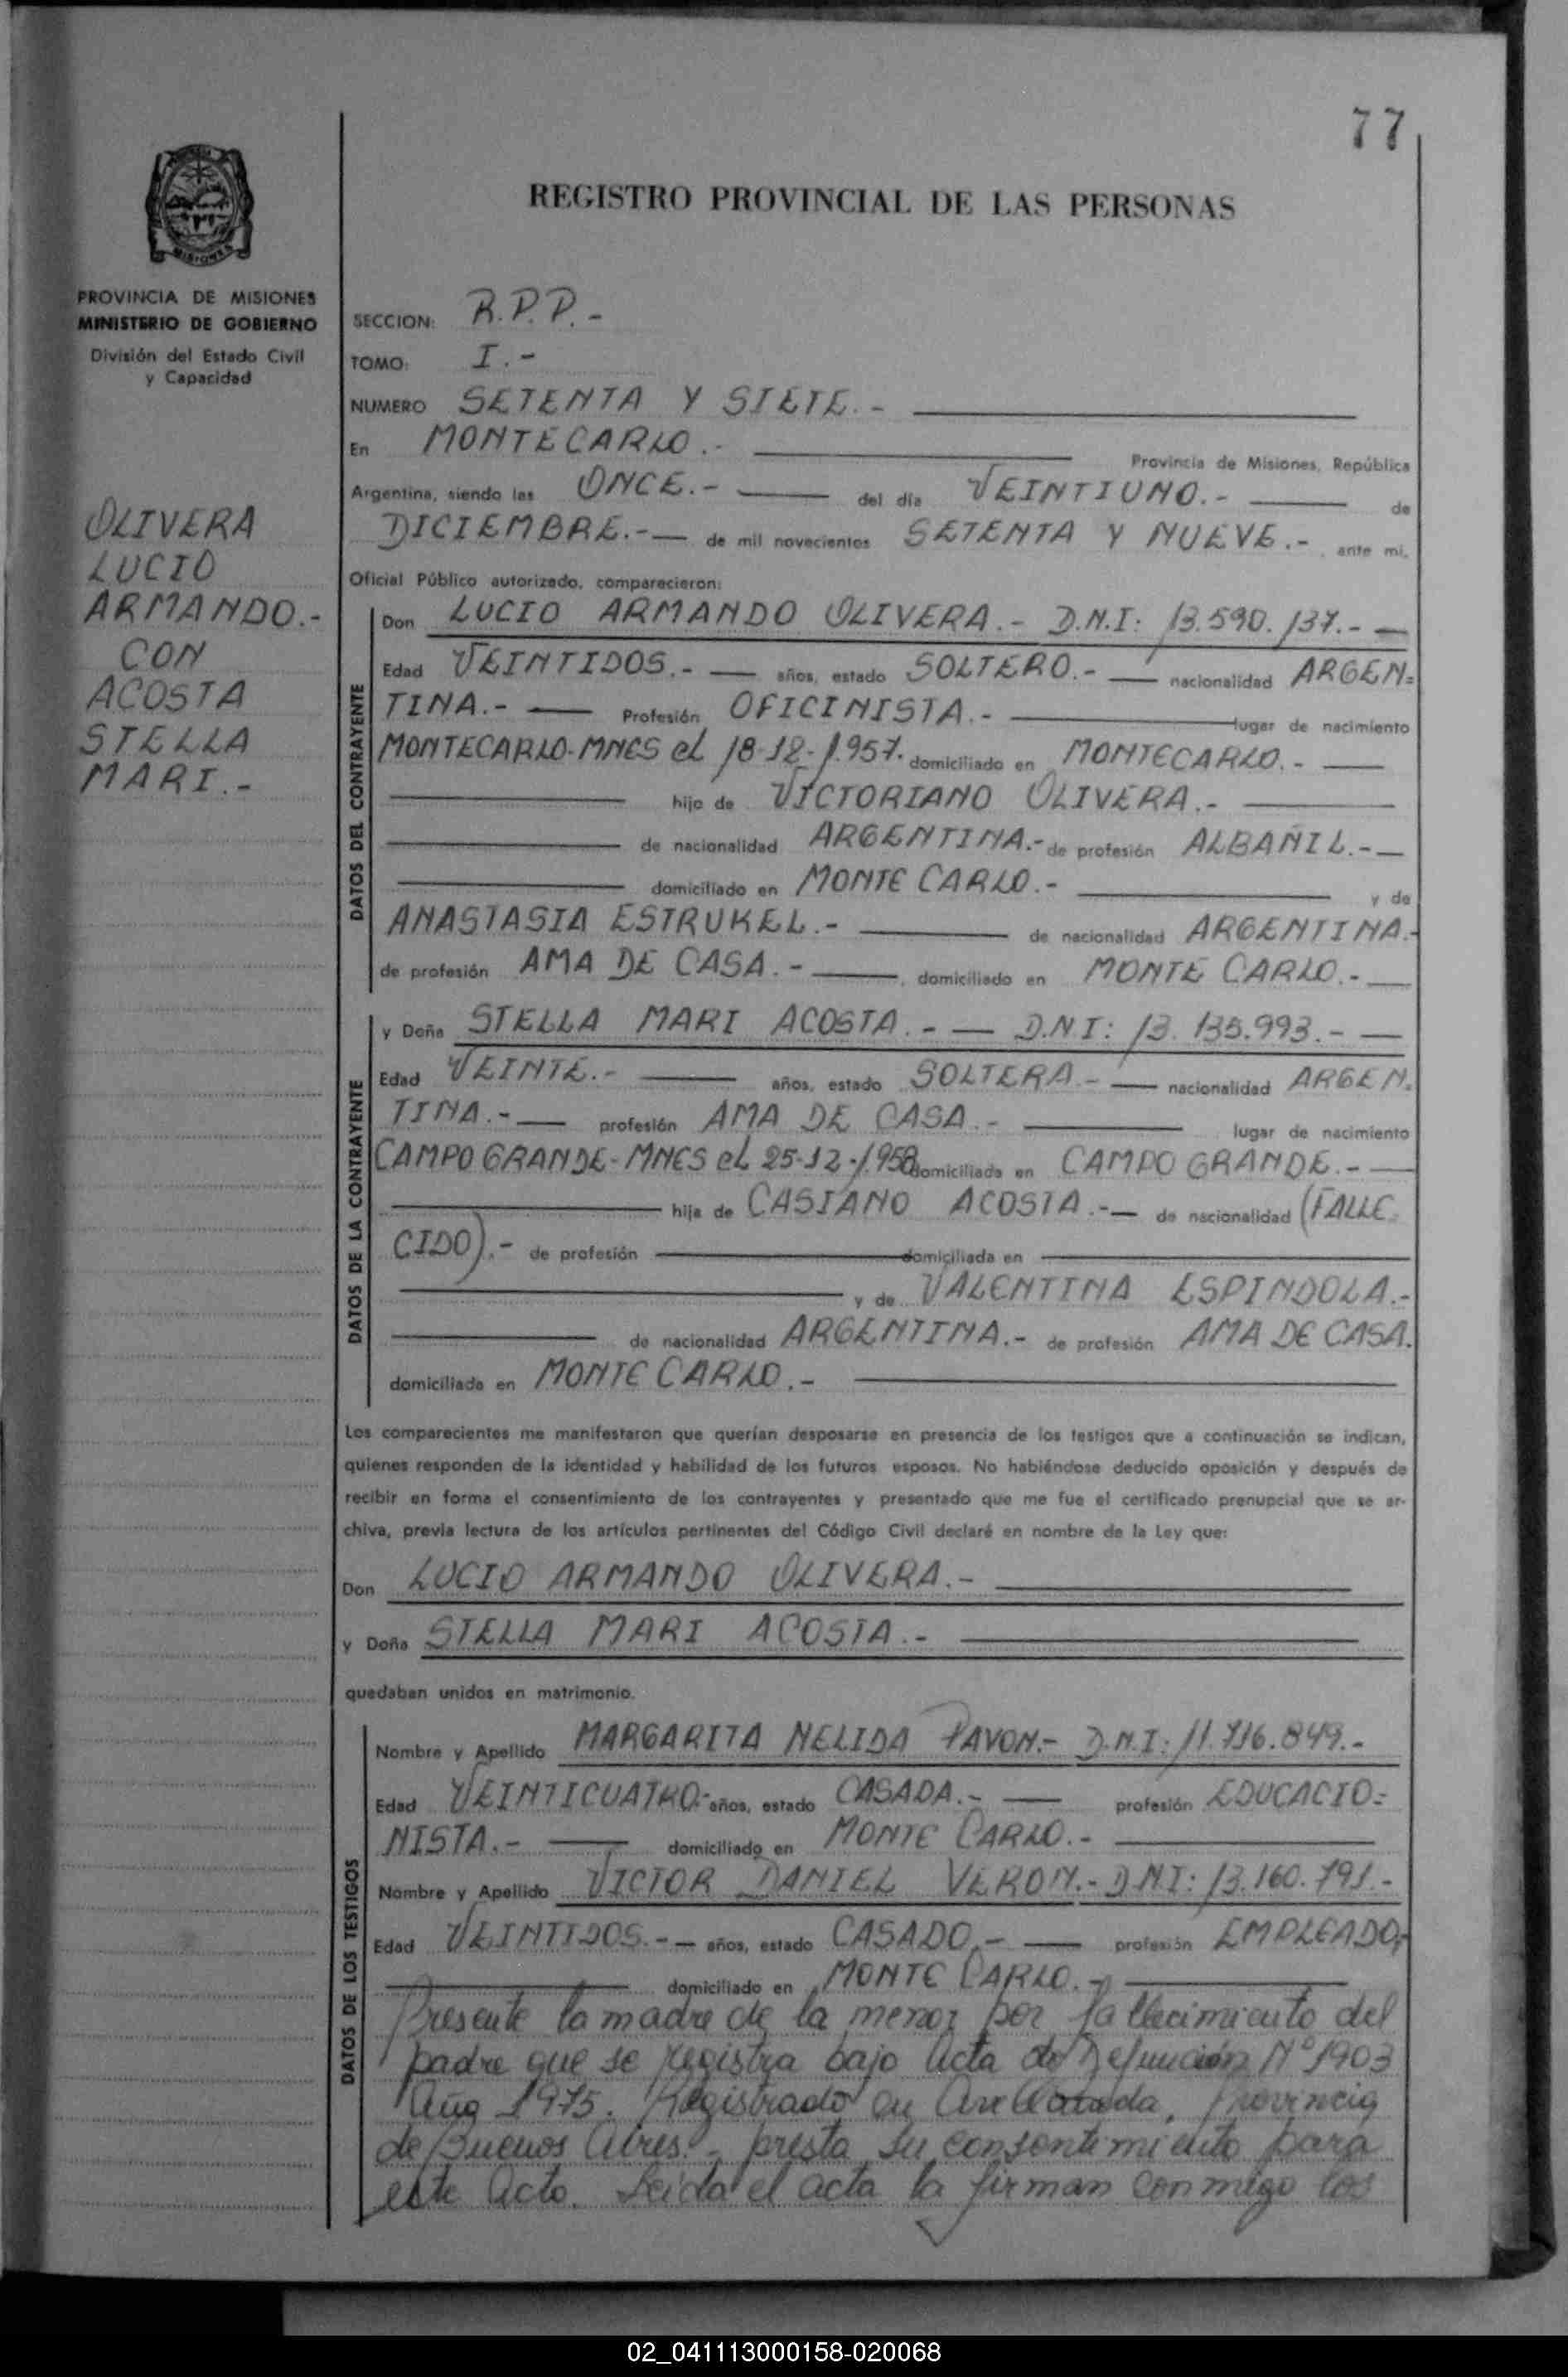 77
REGISTRO PROVINCIAL DE LAS PERSONAS
MISIONES
PROVINCIA DE MISIONES
MINISTERIO DE GOBIERNO
División del Estado Civil
y Capacidad
OLIVERA
LUCIO
ARMANDO.-
CON
ACOSTA
STELLA
MARI.-
SECCION: R.P.P.-
TOMO: I.-
NUMERO SETENTA Y SIETE.-
En MONTECARLO.- Provincia de Misiones, República
Argentina, siendo las ONCE.- del día VEINTIUNO.- de
DICIEMBRE.- de mil novecientos SETENTA Y NUEVE.- ante mi,
Oficial Público autorizado, comparecieron:
DATOS DEL CONTRAYENTE
Don LUCIO ARMANDO OLIVERA.- D.N.I: 13.590.137.-
Edad VEINTIDOS.- años, estado SOLTERO.- nacionalidad ARGEN=
TINA.- Profesión OFICINISTA.- lugar de nacimiento
MONTECARLO-MNES el 18-12-1.957. domiciliado en MONTECARLO.-
hijo de VICTORIANO OLIVERA.-
de nacionalidad ARGENTINA.- de profesión ALBAÑIL.-
domiciliado en MONTE CARLO.- y de
ANASTASIA ESTRUKEL.- de nacionalidad ARGENTINA.-
de profesión AMA DE CASA.-, domiciliado en MONTE CARLO.-
DATOS DE LA CONTRAYENTE
y Doña STELLA MARI ACOSTA.- D.N.I: 13.135.993.-
Edad VEINTE.- años, estado SOLTERA.- nacionalidad ARGEN.
TINA.- profesión AMA DE CASA.- lugar de nacimiento
CAMPO GRANDE-MNES el 25-12-1.958 domiciliada en CAMPO GRANDE.-
hija de CASIANO ACOSTA.- de nacionalidad (FALLE
CIDO).- de profesión domiciliada en
y de VALENTINA ESPINDOLA.-
de nacionalidad ARGENTINA.- de profesión AMA DE CASA.
domiciliada en MONTE CARLO.-
Los comparecientes me manifestaron que querían desposarse en presencia de los testigos que a continuación se indican,
quienes responden de la identidad y habilidad de los futuros esposos. No habiéndose deducido oposición y después de
recibir en forma el consentimiento de los contrayentes y presentado que me fue el certificado prenupcial que se ar-
chiva, previa lectura de los artículos pertinentes del Código Civil declaré en nombre de la Ley que:
Don LUCIO ARMANDO OLIVERA.-
y Doña STELLA MARI ACOSTA.-
quedaban unidos en matrimonio.
DATOS DE LOS TESTIGOS
Nombre y Apellido MARGARITA NELIDA PAVON.- D.N.I: 11.716.849.-
Edad VEINTICUATRO.- años, estado CASADA.- profesión EDUCACIO=
NISTA.- domiciliado en MONTE CARLO.-
Nombre y Apellido VICTOR DANIEL VERON.- D.N.I: 13.160.791.-
Edad VEINTIDOS.- años, estado CASADO.- profesión EMPLEADO,
domiciliado en MONTE CARLO.-
Presente la madre de la menor por fallecimiento del
padre que se registra bajo Acta de Defunción Nº 1903
Año 1975. Registrado en Avellaneda, Provincia
de Buenos Aires.- presta su consentimiento para
este Acto. Leida el acta la firman conmigo los
02_041113000158-020068